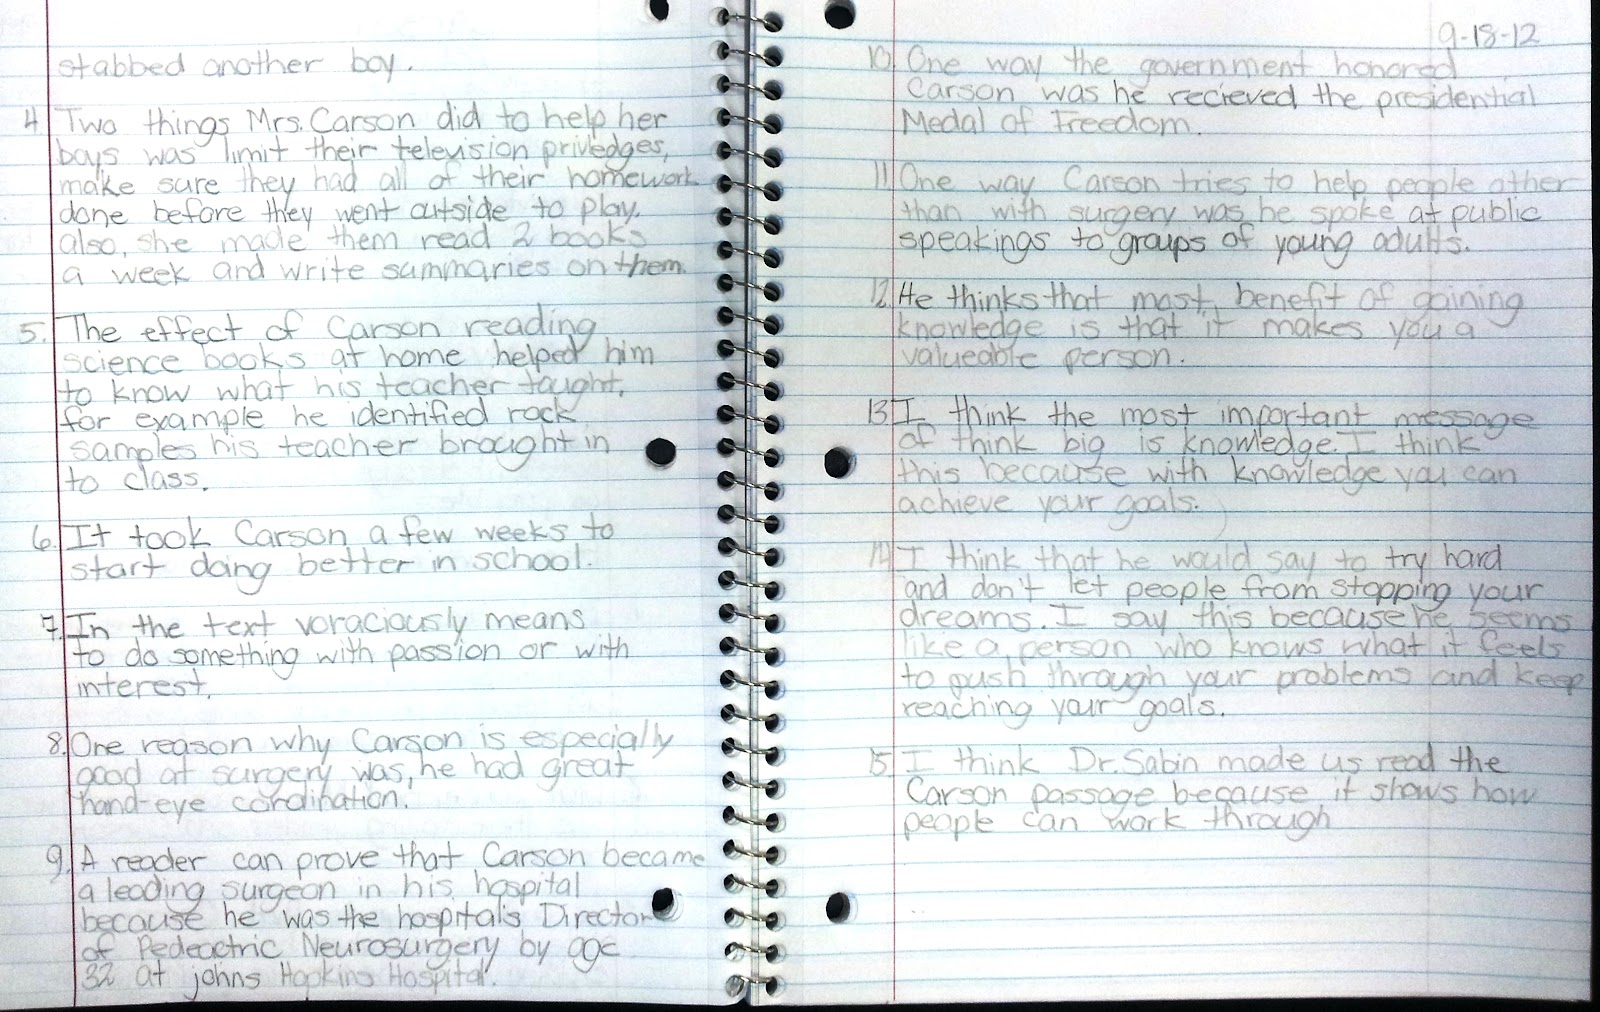 stabbed another boy.
4. Two things Mrs. Carson did to help her
boys was limit their television priviedges,
make sure they had all of their homework
done before they went outside to play.
also, she made them read 2 books
a week and write summaries on them.
5. The effect of Carson reading
science books at home helped him
to know what his teacher taught.
for example he identified rock
samples his teacher brought in
to class.
6. It took Carson a few weeks to
start doing better in school.
7. In the text voraciously means
to do something with passion or with
interest.
8. One reason why Carson is especially
good at surgery was, he had great
hand-eye cordination.
9. A reader can prove that Carson became
a leading surgeon in his hospital
because he was the hospitals Director
of Pedeactric Neurosurgery by age
32 at johns Hopkins Hospital.
9-18-12
10. One way the government honored
Carson was he recieved the presidential
Medal of Freedom.
11 One way Carson tries to help people other
than with surgery was he spoke at public
speakings to groups of young adults.
12 He thinks that most benefit of gaining
knowledge is that it makes you a
valueable person.
13 I think the most important message
of think big is knowledge. I think
this because with knowledge you can
achieve your goals.
14 I think that he would say to try hard
and don't let people from stopping your
dreams. I say this because he seems
like a person who knows what it feels
to push through your problems and keep
reaching your goals.
15 I think Dr. Sabin made us read the
Carson passage because it shows how
people can work through